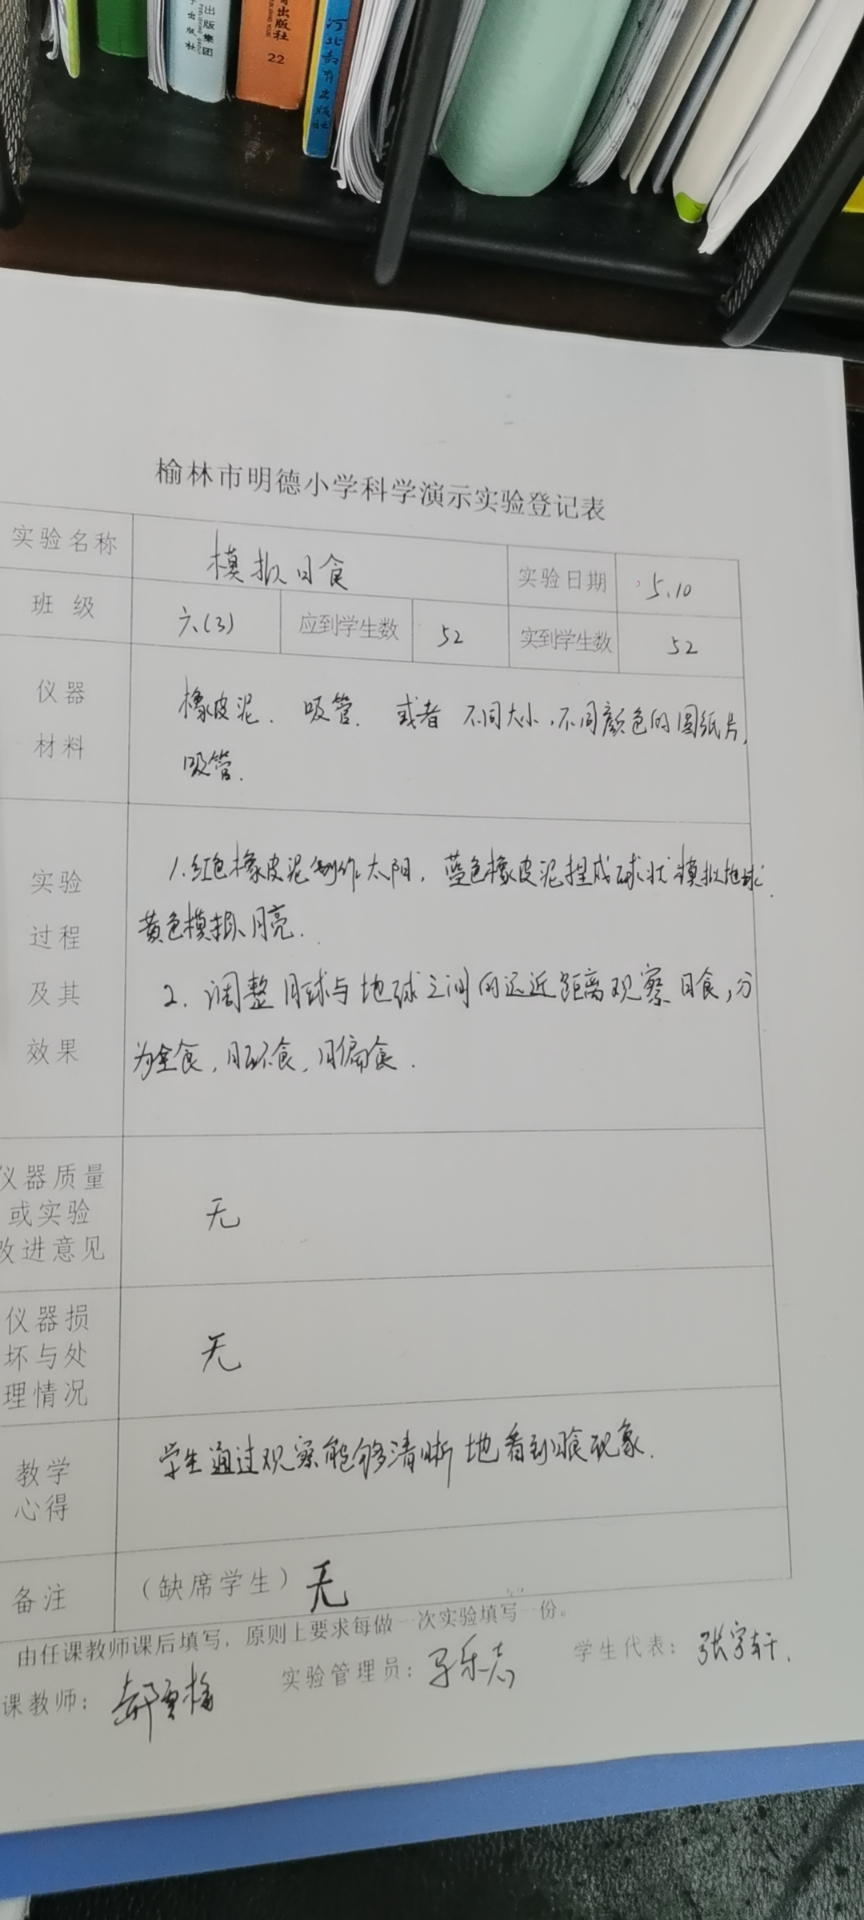 出版集团
出版社
出版社
22
河北教育出版社
榆林市明德小学科学演示实验登记表
实验名称 模拟日食 实验日期 5.10
班级 六(3) 应到学生数 52 实到学生数 52
仪器材料
橡皮泥、吸管、或者不同大小,不同颜色的圆纸片,
吸管.
实验过程及其效果
1.红色橡皮泥制作太阳,蓝色橡皮泥捏成球状模拟地球.
黄色模拟月亮.
2.调整月球与地球之间的远近距离观察日食,分
为全食,日环食,日偏食.
仪器质量或实验改进意见 无
仪器损坏与处理情况 无
教学心得 学生通过观察能够清晰地看到日食现象.
备注 (缺席学生)无
由任课教师课后填写,原则上要求每做一次实验填写一份。
课教师: 实验管理员: 学生代表:张宇轩.